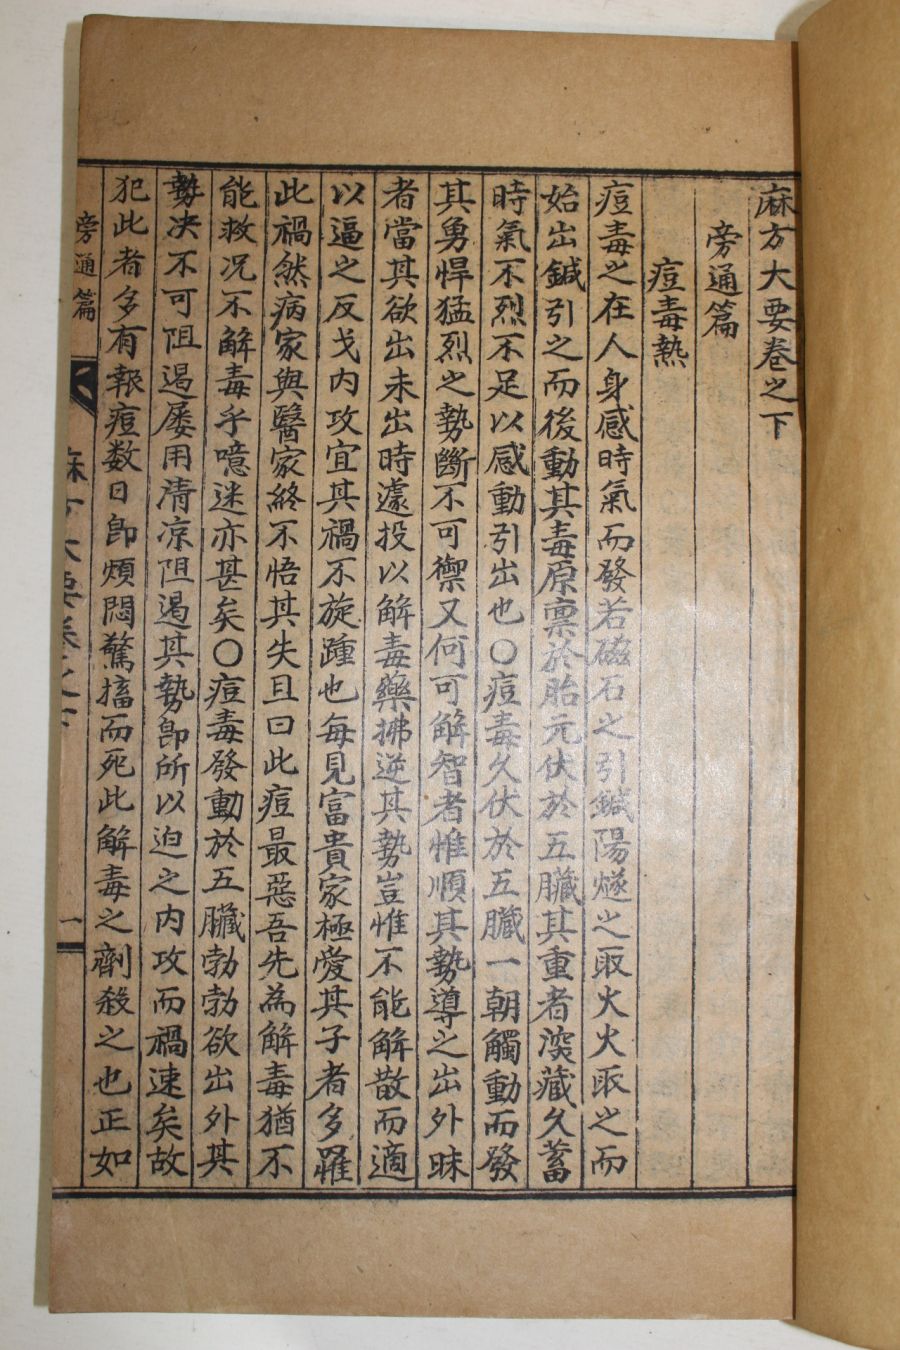 麻方大要卷之下
旁通篇
痘毒熱
痘毒之在人身感時氣而發若磁石之引鍼陽燧之取火火取之而
始出鍼引之而後動其毒原稟於胎元伏於五臟其重者深藏久蓄
時氣不烈不足以感動引出也○痘毒久伏於五臟一朝觸動而發
其勇悍猛烈之勢斷不可禦又何可解智者惟順其勢導之出外昧
者當其欲出未出時遽投以解毒藥拂逆其勢豈惟不能解散而適
以逼之反戈内攻宜其禍不旋踵也每見富貴家極愛其子者多罹
此禍然病家與醫家終不悟其失且曰此痘最惡吾先為解毒猶不
能救况不解毒乎噫迷亦甚矣○痘毒發動於五臟勃勃欲出外其
勢决不可阻遏屡用清凉阻遏其勢即所以迫之内攻而禍速矣故
犯此者多有報痘数日即煩悶驚搐而死此解毒之劑殺之也正如
旁通篇
麻方大要卷之下
一